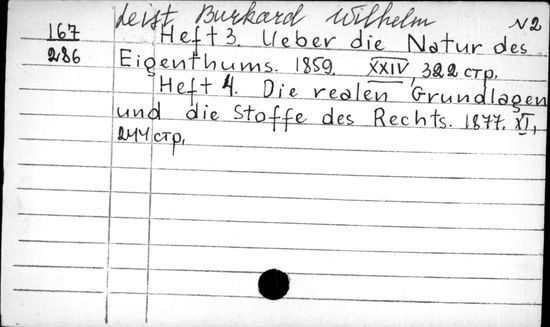 Leist Burkard Wilhelm N2
167 Heft 3. Ueber die Natur des
286 Eigenthums. 1859. XXIV, 322 стр.
Heft 4. Die realen Grundlagen
und die Stoffe des Rechts. 1877. XI,
244 стр.